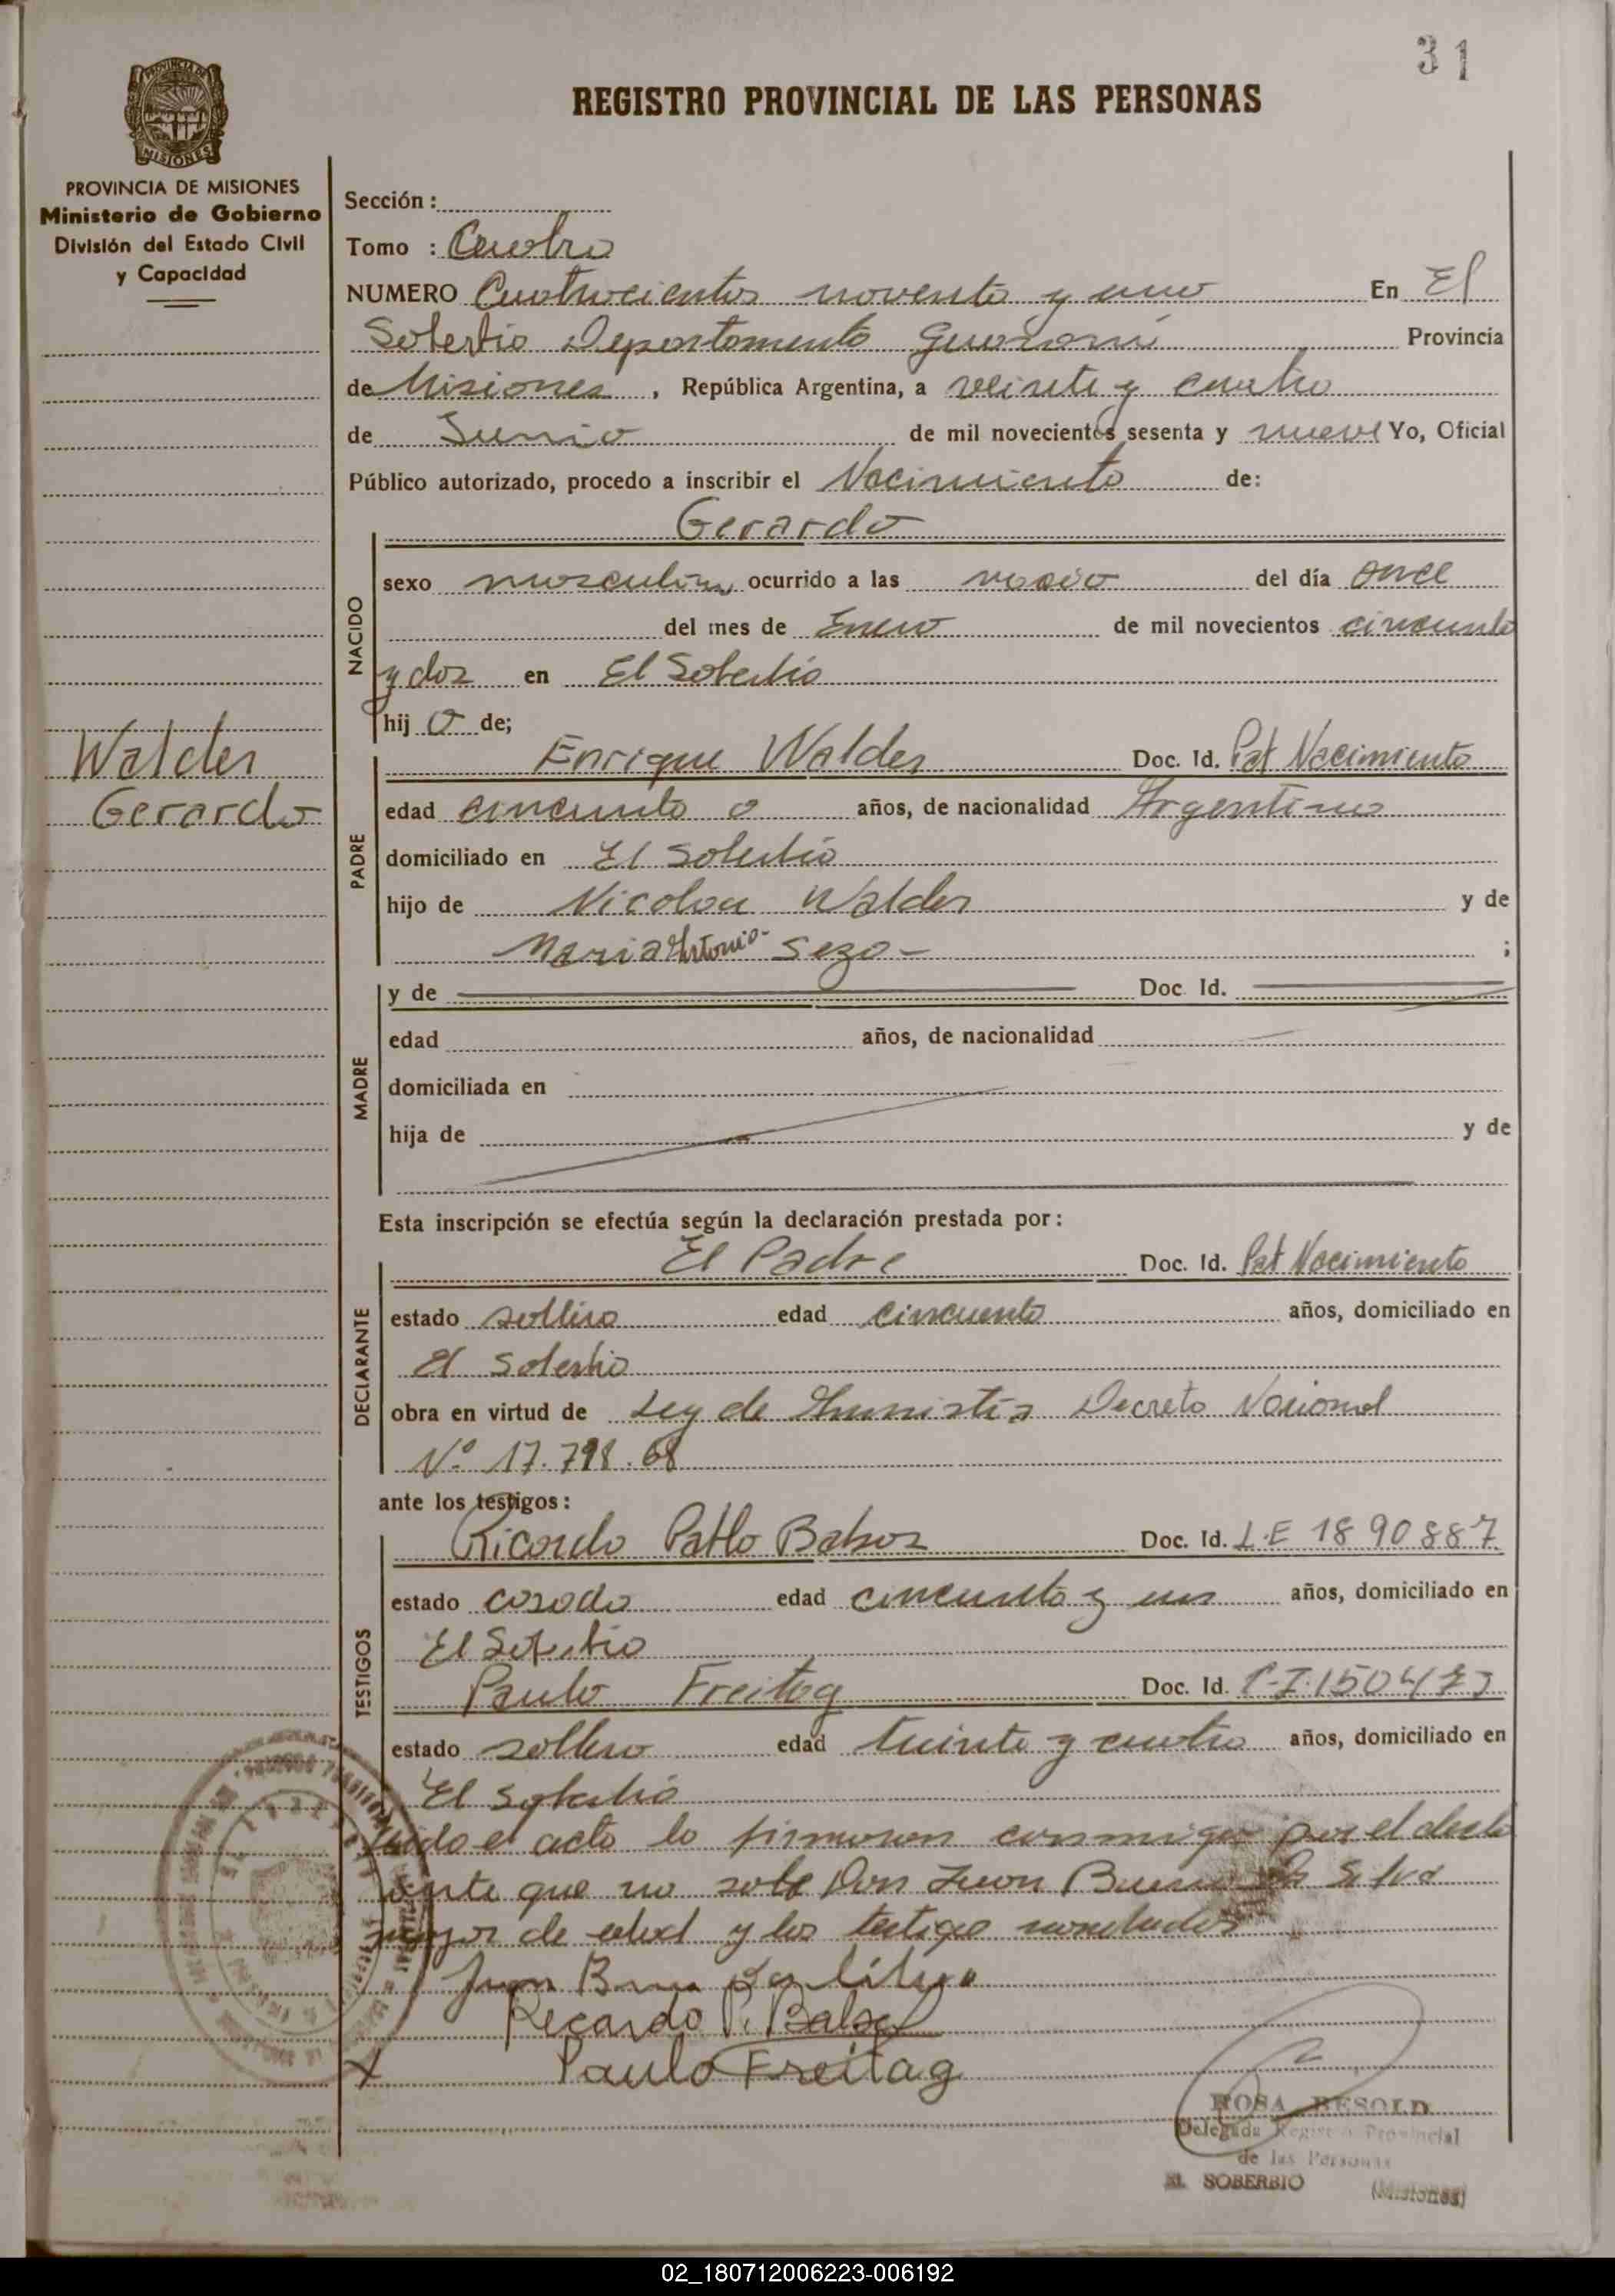 31
REGISTRO PROVINCIAL DE LAS PERSONAS
PROVINCIA DE MISIONES
Ministerio de Gobierno
División del Estado Civil
y Capacidad
Sección :
Tomo : Cuatro
NUMERO Cuatrocientos noventa y uno En El
Soberbio Departamento Guaraní Provincia
de Misiones , República Argentina, a veinte y cuatro
de Junio de mil novecientos sesenta y nueve Yo, Oficial
Público autorizado, procedo a inscribir el Nacimiento de:
Gerardo
NACIDO
sexo masculino ocurrido a las del día once
del mes de Enero de mil novecientos cincuenta
y dos en El Soberbio
hij o de;
Walder
Gerardo
PADRE
Enrique Walder Doc. Id. Pat Nacimiento
edad cincuenta años, de nacionalidad Argentino
domiciliado en El Soberbio
hijo de Nicolau Walder y de
Maria Antonia Sezo - ;
MADRE
y de Doc. Id.
edad años, de nacionalidad
domiciliada en
hija de y de
Esta inscripción se efectúa según la declaración prestada por :
DECLARANTE
El Padre Doc. Id. Pat Nacimiento
estado soltero edad cincuenta años, domiciliado en
El Soberbio
obra en virtud de Ley de Amnistia Decreto Nacional
Nº 17.798.68
ante los testigos :
TESTIGOS
Ricardo Pablo Doc. Id. L.E 1890887
estado casado edad cincuenta y un años, domiciliado en
El Soberbio
Paulo Freitag Doc. Id. C.I. 150473
estado soltero edad treinta y cuatro años, domiciliado en
El Soberbio
Leido el acto lo firmaron conmigo por el decla
rante que no sabe Don Juan Bueno Da Silva
mayor de edad y los testigo nombrados
Juan Da Silva
Recardo P.
X Paulo Freitag
ROSA BESOLD
Delegada Registro Provincial
de las Personas
EL SOBERBIO (Misiones)
02_180712006223-006192